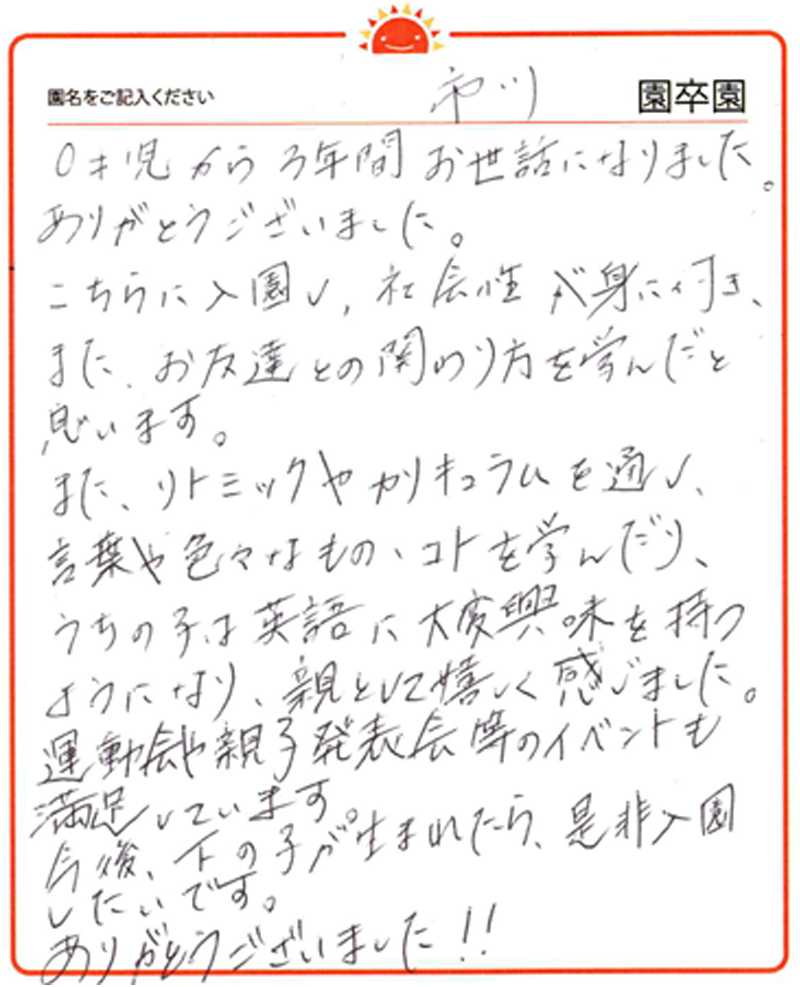 園名をご記入ください 市川 園卒園
0才児から3年間お世話になりました。
ありがとうございました。
こちらに入園し、社会性が身に付き、
また、お友達との関わり方を学んだと
思います。
また、リトミックやカリキュラムを通し、
言葉や色々なもの・コトを学んだり、
うちの子は英語に大変興味を持つ
ようになり、親として嬉しく感じました。
運動会や親子発表会等のイベントも
満足しています。
今後、下の子が生まれたら、是非入園
したいです。
ありがとうございました!!